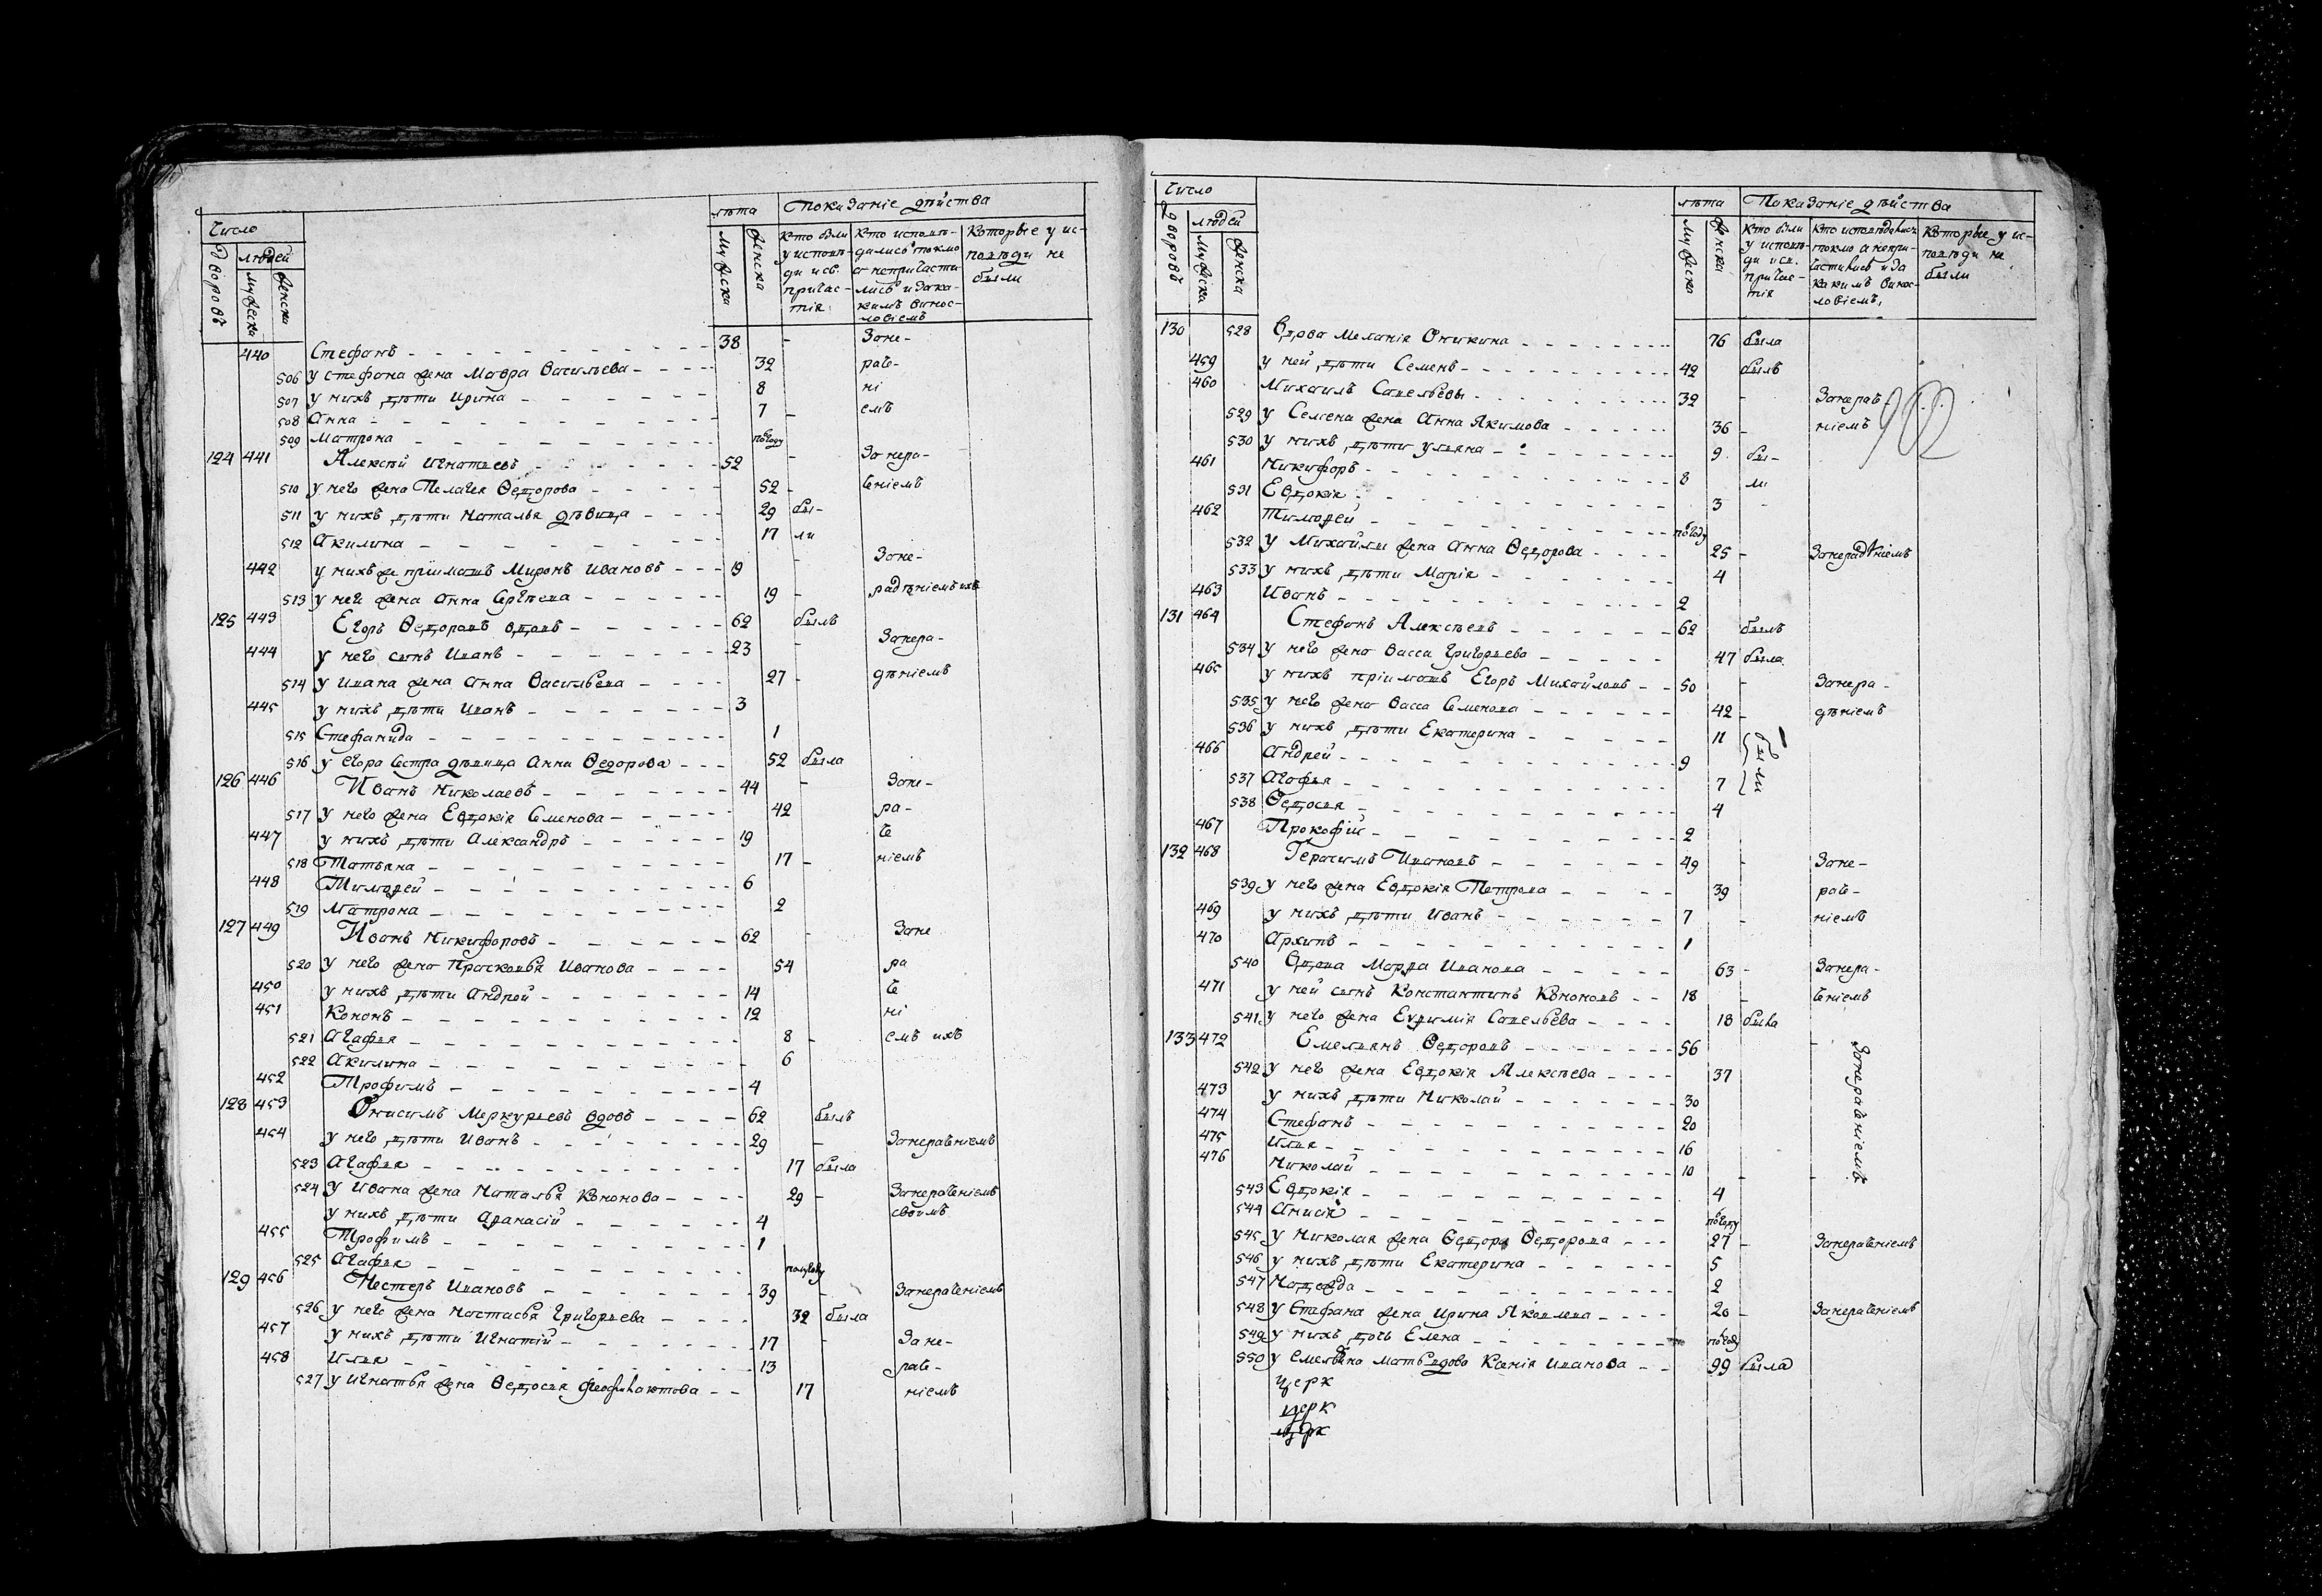 Число
лѣта Показаніе дѣйства
Дворовъ
людей
Мужеска
Женска
Мужеска
Женска
Кто были у исповѣди и св. причастія
Кто исповѣдались токмо а непричастились и закакимъ винословіемъ
Которые у исповѣди не были
440 Стефанъ 38 - Зане-
506 у стефана жена Мавра Васильева 32 раче-
507 у нихъ дѣти Ирина 8 ні
508 Анна 7 - емъ
509 Матрона полгоду
124 441 Алексѣй Игнатьевъ 52 - За нера-
510 у него жена Пелагея Ѳедорова 52 - ченіемъ
511 у нихъ дѣти Наталья дѣвица 29 бы-
512 Акилина 17 ли
442 у нихъ же пріиматъ Миронъ Ивановъ 19 - Зане-
513 у него жена Анна Сергѣева 19 - радѣніемъ ихъ
125 443 Егоръ Ѳедоровъ вдовъ 62 былъ
444 у него сынъ Иванъ 23 - Занера-
514 у Ивана жена Анна Васильева 27 - дѣніемъ
445 у нихъ дѣти Иванъ 3
515 Стефанида 1
516 у Егора Сестра дѣвица Анна Ѳедорова 52 была
126 446 Иванъ Николаевъ 44 - Зане-
517 у него жена Евдокія Семенова 42 ра-
447 у нихъ дѣти Александръ 19 че
518 Татьяна 17 - ніемъ
448 Тимоѳей 6
519 Матрона 2
127 449 Иванъ Никифоровъ 62 - Зане
520 у него жена Прасковья Иванова 54 ра
450 у нихъ дѣти Андрей 14 че
451 Кононъ 12 ні
521 Агафья 8 - емъ ихъ
522 Акилина 6
452 Трофимъ 4
128 453 Онисимъ Меркурьевъ вдовъ 62 былъ
454 у него дѣти Иванъ 29 - Занераченіемъ
523 Агафья 17 была
524 у Ивана жена Наталья Кононова 29 - Занераченіемъ
у нихъ дѣти Аѳанасій 4 своимъ
455 Трофимъ 1
525 Агафья полугоду
129 456 Нестеръ Ивановъ 39 - Занераченіемъ
526 у него жена Настасья Григорьева 32 была
457 у нихъ дѣти Игнатій 17 - За не-
458 Илья 13 раче-
527 у Игнатья жена Ѳедосья Феофилактова 17 ніемъ
Число
лѣта Показаніе дѣйства
Дворовъ
людей
Мужеска
Женска
Мужеска
Женска
Кто были у исповѣди и св. причастія
Кто исповѣдались токмо а непричастились и за какимъ винословіемъ,
Которые у исповѣди не были
130 528 Вдова Меланія Оникина 76 была
459 у ней дѣти Семенъ 42 былъ
460 Михаилъ Савельевы 32 - Занераче-
529 у Семена жена Анна Якимова 36 - ніемъ
530 у нихъ дѣти Ульяна 9 бы-
461 Никифоръ 8 ли
531 Евдокія 3 -
462 Тимоѳей полгоду
532 у Михайлы жена Анна Ѳедорова 25 - Занерадѣніемъ
533 у нихъ дѣти Марія 4
463 Иванъ 2
131 464 Стефанъ Алексѣевъ 62 былъ
534 у него жена Васса Григорьева 47 была
465 у нихъ пріиматъ Егоръ Михайловъ 50 - Занера-
535 у него жена Васса Семенова 42 - дѣніемъ
536 у нихъ дѣти Екатерина 11
466 Андрей 9 были
537 Агафья 7
538 Ѳедосья 4
467 Прокофій 2
132 468 Герасимъ Ивановъ 49 - Зане-
539 у него жена Евдокія Петрова 39 раче-
469 у нихъ дѣти Иванъ 7 - ніемъ
470 Архипъ 1
540 Вдова Марѳа Иванова 63 - Занера-
471 у ней сынъ Константинъ Кононовъ 18 - ченіемъ
541 у него жена Еуѳимія Савельева 18 была
133 472 Емельянъ Ѳедоровъ 56 - Занераченіемъ
542 у него жена Евдокія Алексѣева 37
473 у нихъ дѣти Николай 30
474 Стефанъ 20
475 Илья 16
476 Николай 10
543 Евдокія 4
544 Анисія полгоду
545 у Николая жена Ѳедора Ѳедорова 27 - Занераченіемъ
546 у нихъ дѣти Екатерина 5
547 Надежда 2
548 у Стефана жена Ирина Яковлева 20 - Занераченіемъ
549 у нихъ дочь Елена полгоду
550 у Емельяна мать вдова Ксенія Иванова 99 была
церк
церк
церк